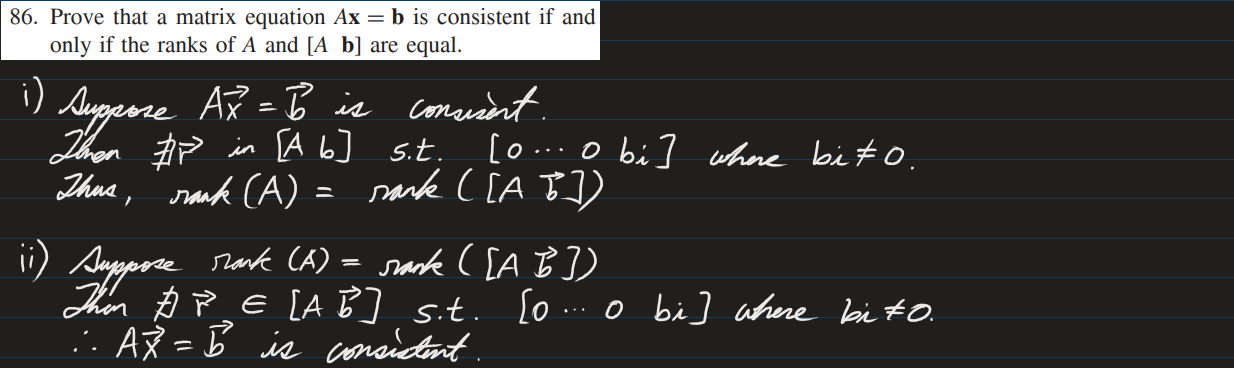 86. Prove that a matrix equation Ax = b is consistent if and
only if the ranks of A and [A b] are equal.
i) Suppose Ax⃗ = b⃗ is consisent.
Then ∄ r⃗ in [A b] s.t. [0 ... 0 bi] where bi ≠ 0.
Thus, rank (A) = rank ([A b⃗])
ii) Suppose rank (A) = rank ([A b⃗])
Then ∄ r⃗ ∈ [A b⃗] s.t. [0 ... 0 bi] where bi ≠ 0.
∴ Ax⃗ = b⃗ is consistent.